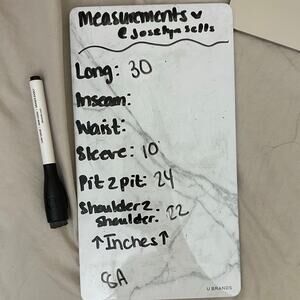 Measurements
@joselynsells
Long: 30
Inseam:
Waist:
Sleeve: 10
Pit 2 pit: 24
Shoulder 2
Shoulder: 22
↑Inches↑
8A
U BRANDS